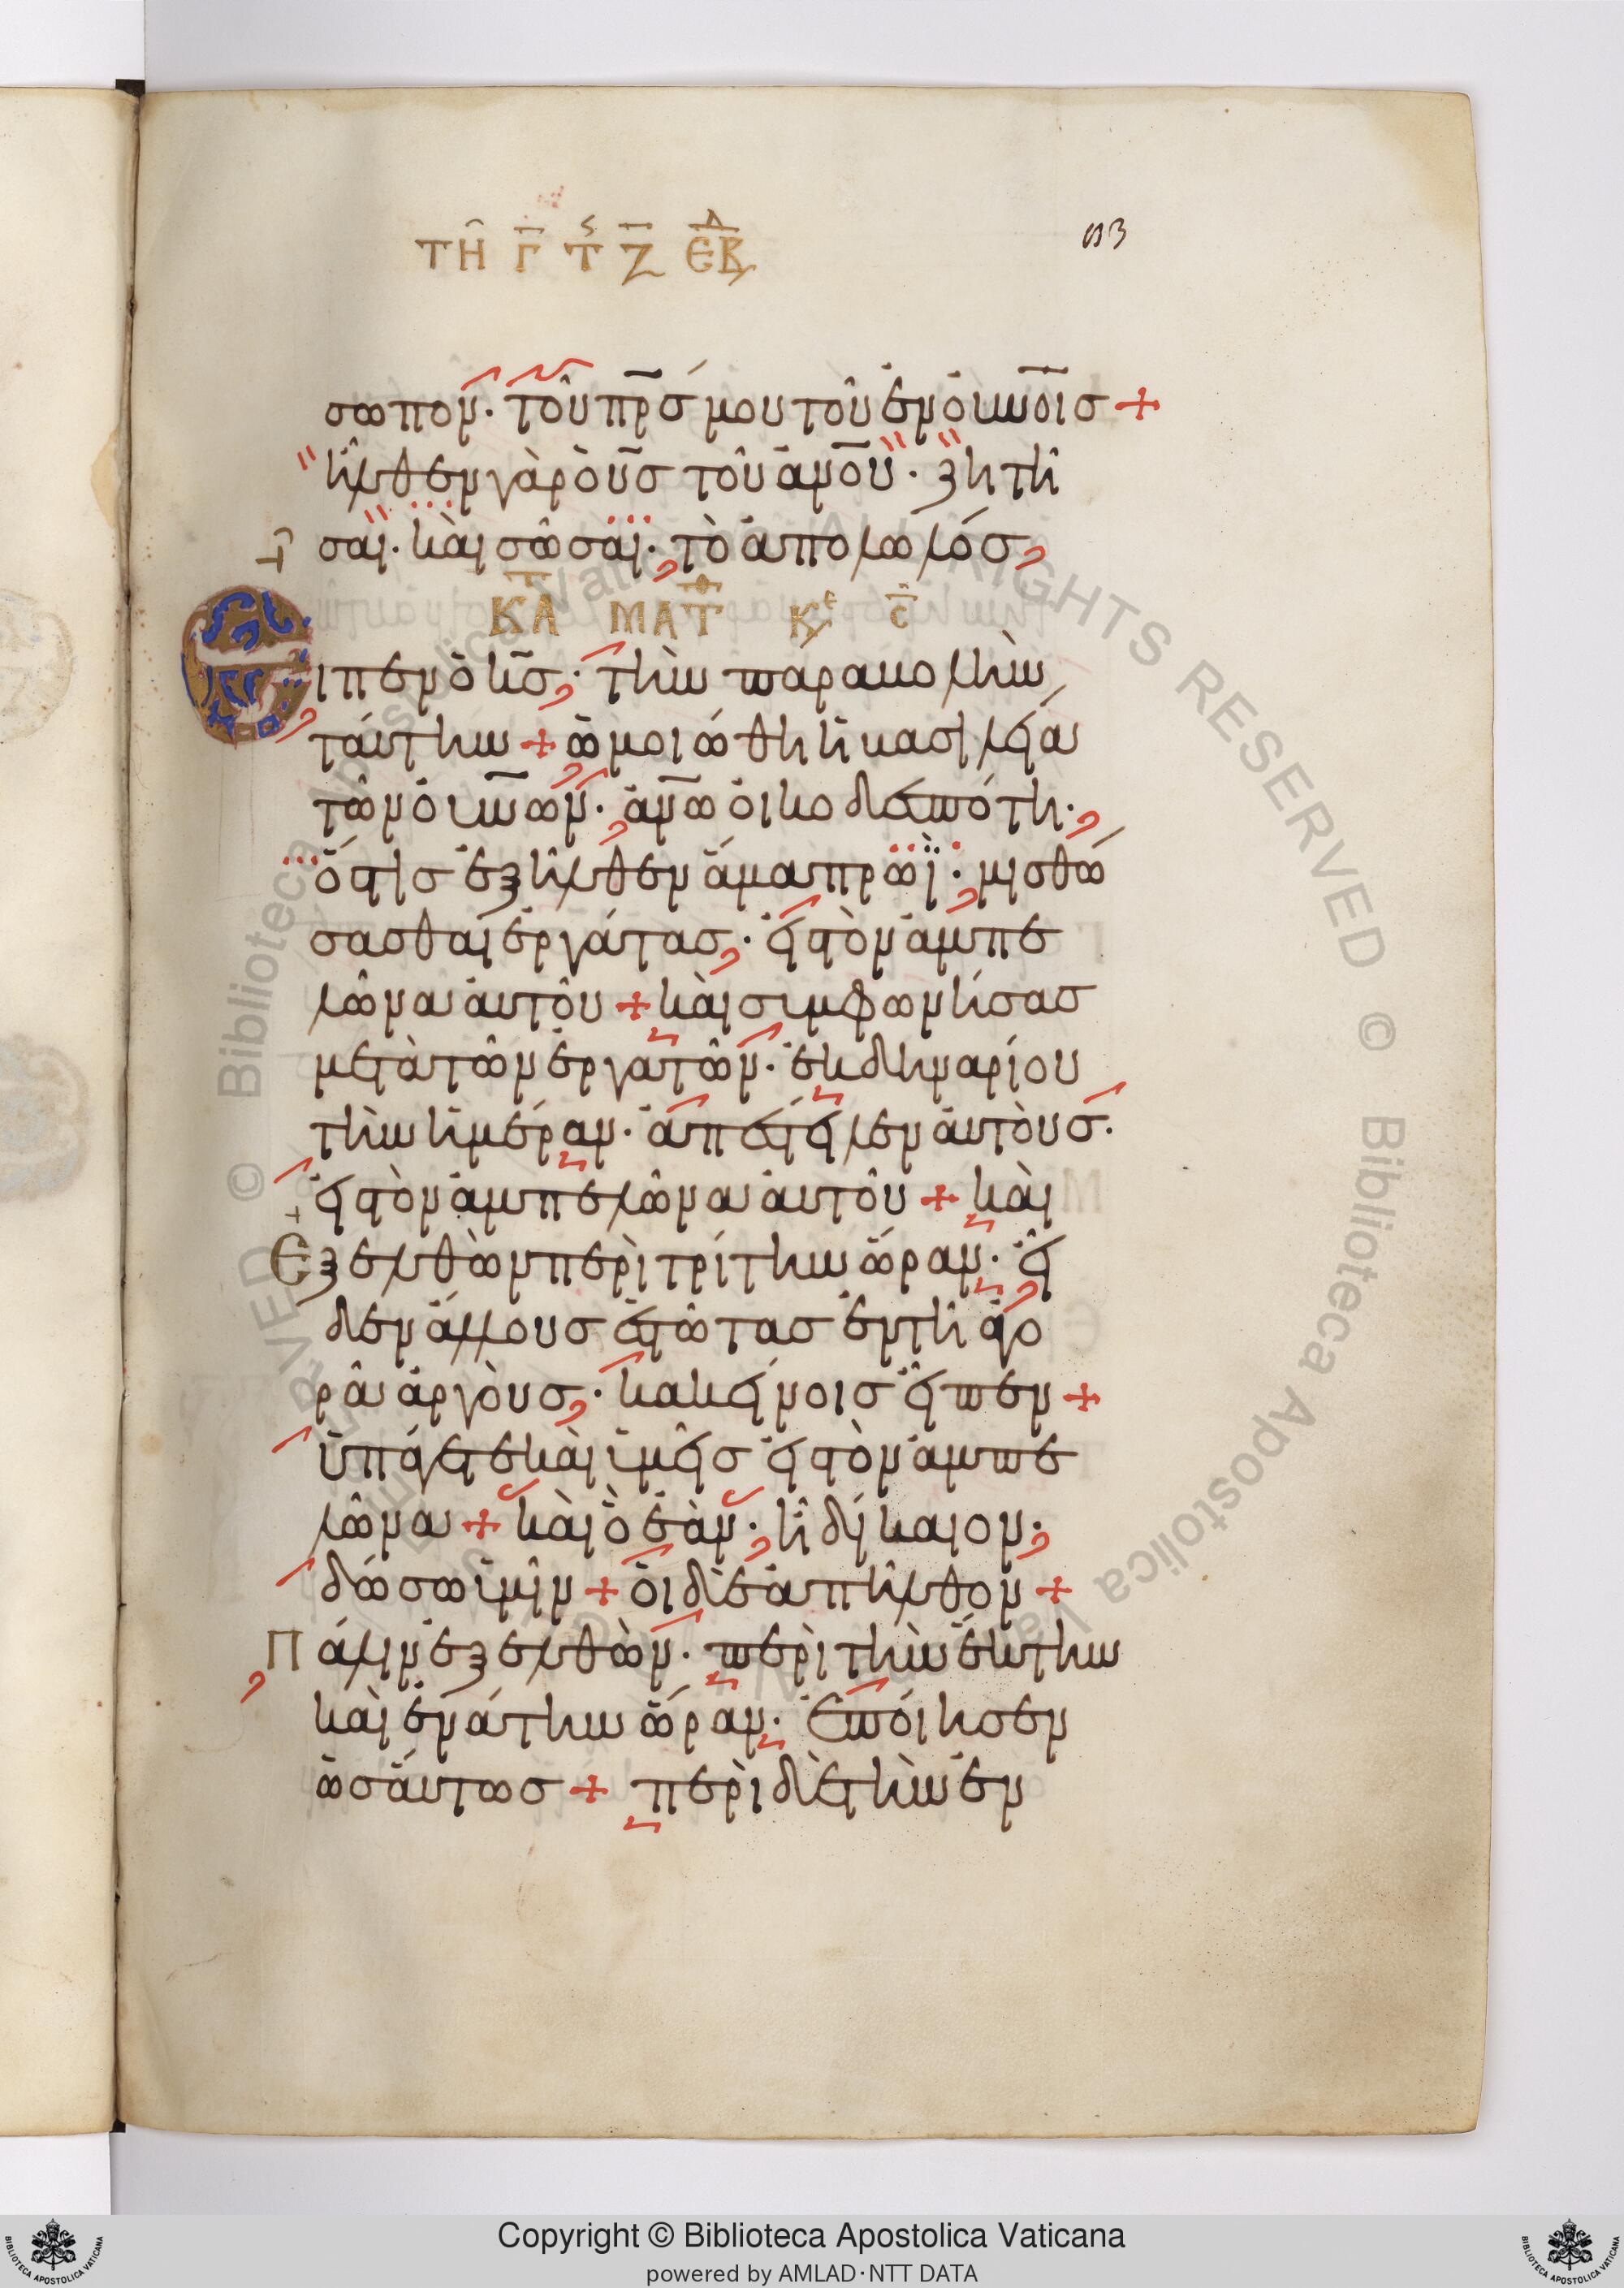 ΤΗ Γ Τ Ζ ΕΒΔ
113
σωπον· τοῦ πρσ μου τοῦ ἐν οὐνοισ +
ἦλθεν γὰρ ὁ υσ τοῦ ανου· ζητῆ
σαι· καὶ σῶσαι· τὸ ἀπολωλόσ,
ΚΑ ΜΑΤΘ
Εἶπεν ὁ κσ· τὴν παραβολὴν
ταύτην + ὡμοιώθη ἡ βασιλεία
τῶν οὐνων· ἀνω οἰκοδεσπότη·
ὅστισ ἐξῆλθεν ἅμα πρωῒ· μισθώ
σασθαι ἐργάτασ· εἰς τὸν ἀμπε
λῶνα αὐτοῦ + καὶ συμφωνήσασ
μετὰ τῶν ἐργατῶν· ἐκ δηναρίου
τὴν ἡμέραν· ἀπέστειλεν αὐτούσ·
εἰς τὸν ἀμπελῶνα αὐτοῦ + καὶ
Ἐξελθὼν περὶ τρίτην ὥραν· εἶ
δεν ἄλλουσ ἑστῶτασ ἐν τῆ ἀγο
ρᾶ ἀργούσ· κακείνοισ εἶπεν +
ὑπάγετε καὶ ὑμεῖσ εἰς τὸν ἀμπε
λῶνα + καὶ ὃ ἐὰν· ἦ δίκαιον·
δώσω ὑμῖν + οἱ δὲ ἀπῆλθον +
Πάλιν ἐξελθὼν· περὶ τὴν ἕκτην
καὶ ἐνάτην ὥραν· ἐποίησεν
ὡσάυτωσ + περὶ δὲ τὴν ἑν
Copyright © Biblioteca Apostolica Vaticana
powered by AMLAD·NTT DATA